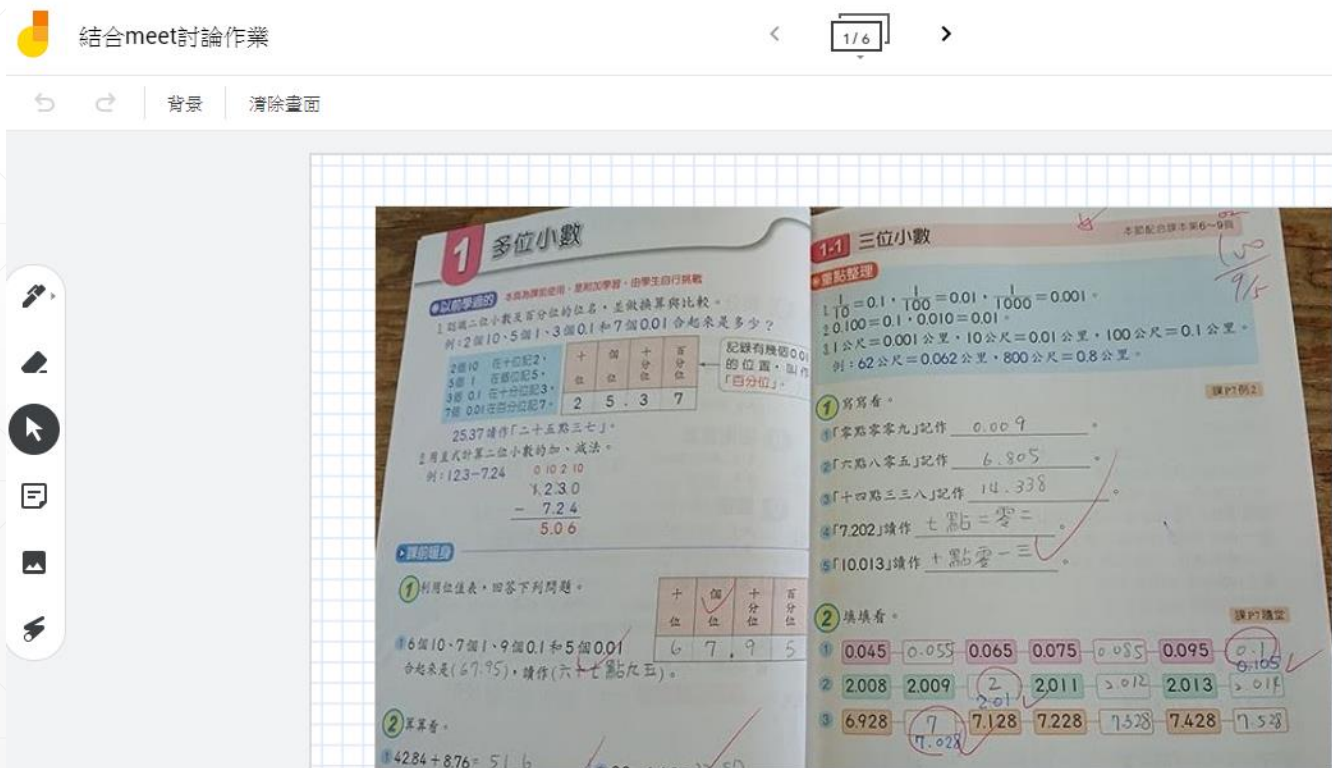 結合meet討論作業
1/6
背景
清除畫面
1 多位小數
以前學過的 本頁為課前使用,是附加學習,由學生自行挑戰
1. 認識二位小數及百分位的位名,並做換算與比較。
例:2個10、5個1、3個0.1和7個0.01合起來是多少?
2個10 在十位記2、
5個1 在個位記5、
3個0.1 在十分位記3、
7個0.01在百分位記7。
十位 個位 十分位 百分位
2 5 . 3 7
記錄有幾個0.01
的位置,叫作
「百分位」。
25.37讀作「二十五點三七」。
2. 用直式計算二位小數的加、減法。
例:12.3-7.24
0 10 2 10
1 2.3 0
- 7.2 4
5.0 6
課前暖身
1 利用位值表,回答下列問題。
十位 個位 十分位 百分位
6 7 . 9 5
① 6個10、7個1、9個0.1和5個0.01
合起來是(67.95),讀作(六十七點九五)。
2 算算看。
① 42.84+8.76= 51.6
1-1 三位小數
本節配合課本第6~9頁
重點整理
9/5
1. 1/10=0.1,1/100=0.01,1/1000=0.001。
2. 0.100=0.1,0.010=0.01。
3. 1公尺=0.001公里,10公尺=0.01公里,100公尺=0.1公里。
例:62公尺=0.062公里,800公尺=0.8公里。
1 寫寫看。
課P7例2
①「零點零零九」記作 0.009 。
②「六點八零五」記作 6.805 。
③「十四點三三八」記作 14.338 。
④「7.202」讀作 七點二零二 。
⑤「10.013」讀作 十點零一三 。
2 填填看。
課P7隨堂
① 0.045 0.055 0.065 0.075 0.085 0.095 0.1
0.105
② 2.008 2.009 2 2.011 2.012 2.013 2.014
2.01
③ 6.928 7 7.128 7.228 7.328 7.428 7.528
7.028